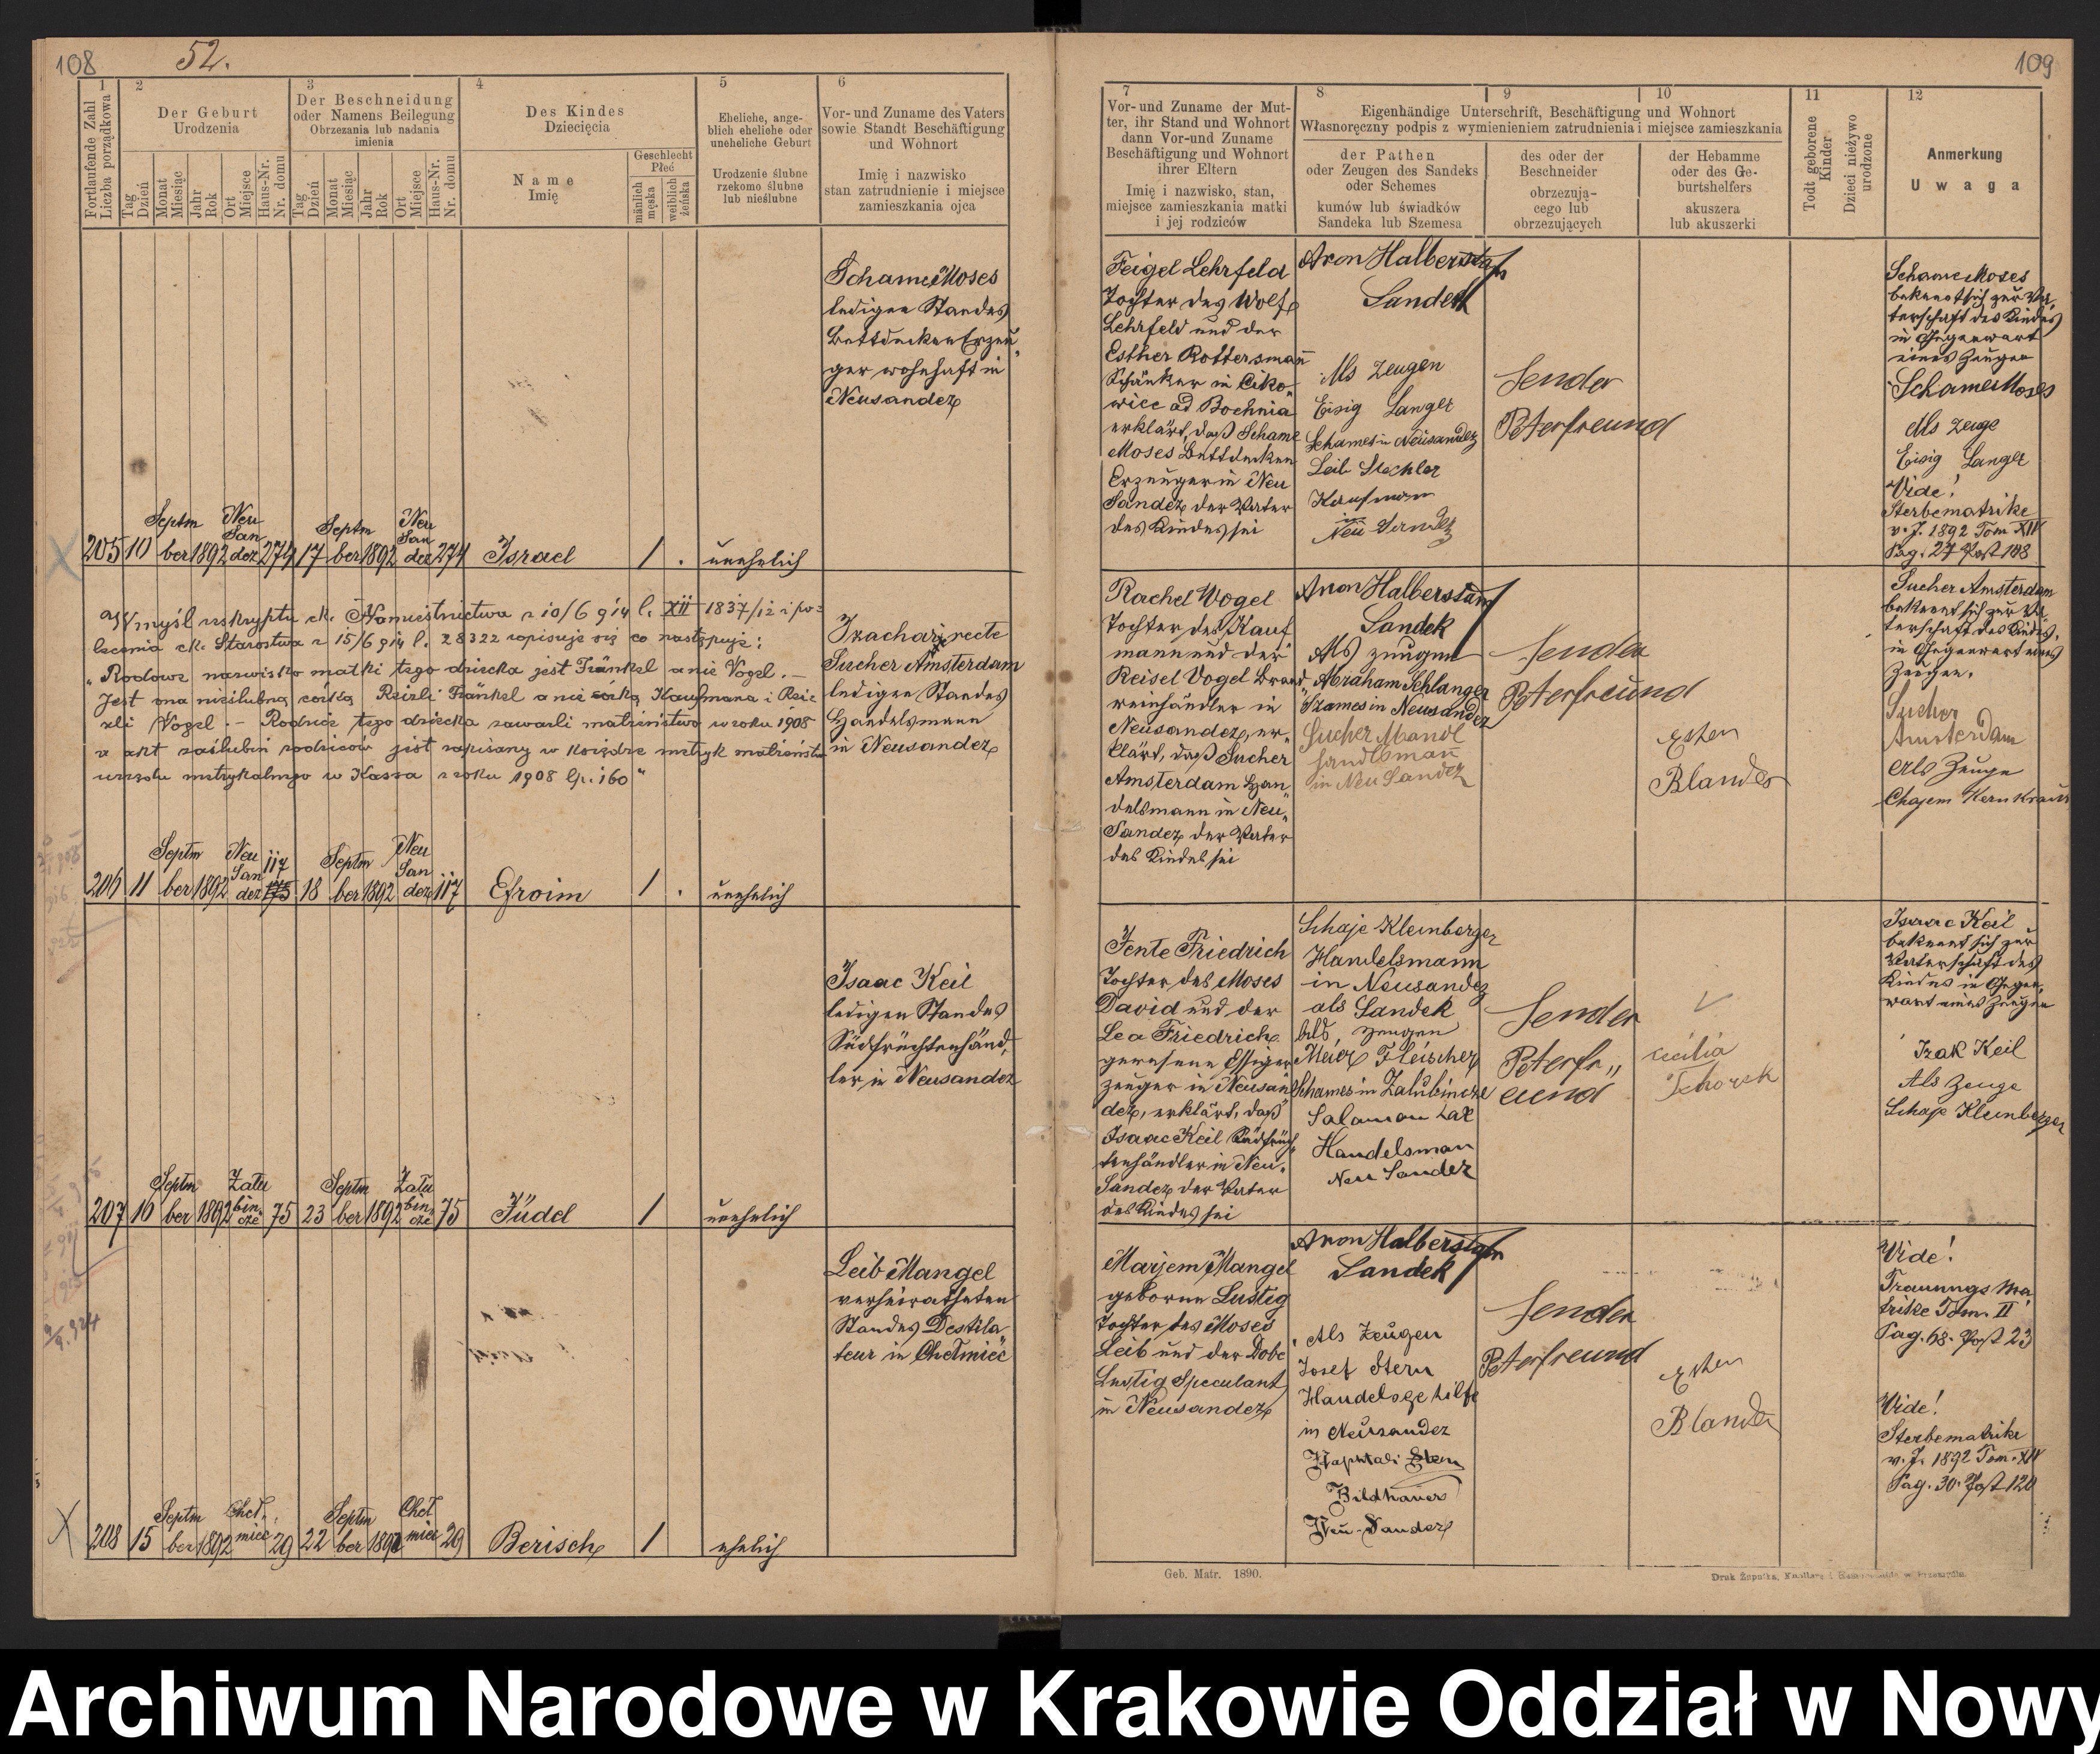 108
52.
109
1
2
3
4
5
6
Fortlaufende Zahl
Liczba porządkowa
Der Geburt
Urodzenia
Der Beschneidung
oder Namens Beilegung
Obrzezania lub nadania
imienia
Des Kindes
Dziecięcia
Eheliche, ange-
blich eheliche oder
uneheliche Geburt
Urodzenie ślubne
rzekomo ślubne
lub nieślubne
Vor- und Zuname des Vaters
sowie Standt Beschäftigung
und Wohnort
Imię i nazwisko
stan zatrudnienie i miejsce
zamieszkania ojca
Tag
Dzień
Monat
Miesiąc
Jahr
Rok
Ort
Miejsce
Haus-Nr.
Nr. domu
Tag
Dzień
Monat
Miesiąc
Jahr
Rok
Ort
Miejsce
Haus-Nr.
Nr. domu
Name
Imię
Geschlecht
Płeć
männlich
męska
weiblich
żeńska
7
8
9
10
11
12
Vor- und Zuname der Mut-
ter, ihr Stand und Wohnort
dann Vor-und Zuname
Beschäftigung und Wohnort
ihrer Eltern
Imię i nazwisko, stan,
miejsce zamieszkania matki
i jej rodziców
Eigenhändige Unterschrift, Beschäftigung und Wohnort
Własnoręczny podpis z wymienieniem zatrudnienia i miejsce zamieszkania
der Pathen
oder Zeugen des Sandeks
oder Schemes
kumów lub świadków
Sandeka lub Szemesa
des oder der
Beschneider
obrzezują-
cego lub
obrzezujących
der Hebamme
oder des Ge-
burtshelfers
akuszera
lub akuszerki
Todt geborene
Kinder
Dzieci nieżywo
urodzone
Anmerkung
Uwaga
Schame Moses
ledigen Standes
Bettdecken Erzeu„
ger wohnhaft in
Neusandez
Septm Neu San Septm Neu San
205 10 ber 1892 dez 274 17 ber 1892 dez 274 Israel 1 . unehelich
Feigel Lehrfeld
Tochter des Wolf
Lehrfeld und der
Esther Rottersmann
Schänker in Ciko„
wice ad Bochnia
erklärt, daß Schame
Moses Bettdecken
Erzeuger in Neu
Sandez der Vater
des Kindes sei
Aron Halberstam
Sandek
Als Zeugen
Eisig Langer
Schames in Neusandez
Leib Stechler
Kaufmann
in
Neu Sandez
Sender
Peterfreund
Schame Moses
bekennt sich zur Va„
terschaft des Kindes
in Gegenwart
eines Zeugen
Schame Moses
Als Zeuge
Eisig Langer
Vide!
Sterbematrike
v. J. 1892 Tom XIV
Pag. 27 Post 108
W myśl reskryptu ck. Namiestnictwa z 10/6 914 l. XII 1837/12 i po=
lecenia ck. Starostwa z 15/6 914 l. 28322 wpisuje się co następuje:
„Rodowe nazwisko matki tego dziecka jest Fränkel a nie Vogel. –
Jest ona nieślubną córką Reizli Fränkel a nie córką Kaufmana i Rei=
zli Vogel. – Rodzice tego dziecka zawarli małżeństwo w roku 1908
a akt zaślubin rodziców jest zapisany w księdze metryk małżeństw
urzędu metrykalnego w Kassa z roku 1908 lp. 160"
Izachar recte
Sucher Amsterdam
ledigen Standes
Handelsmann
in Neusandez
Septm Neu San 117 Septm Neu San
206 11 ber 1892 dez 175 18 ber 1892 dez 117 Efroim 1 . unehelich
Rachel Vogel
Tochter des Kauf
mann und der
Reisel Vogel Brand„
weinhändler in
Neusandez, er„
klärt, daß Sucher
Amsterdam Han„
delsmann in Neu„
Sandez der Vater
des Kindes sei
Aron Halberstam
Sandek
Als zeugen
Abraham Schlanger
Szames in Neusandez
Sucher Mandl
handlsmann
in Neu Sandez
Sender
Peterfreund
Ester
Blander
Sucher Amsterdam
bekennt sich zur Va„
terschaft des Kindes,
in Gegenwart eines
Zeugen.
Sucher
Amsterdam
Als Zeuge
Chajem Kernkraut
Isaac Keil
ledigen Standes
Südfrüchtenhänd„
ler in Neusandez
Septm Zału Septm Zału
207 16 ber 1892 bin cze 75 23 ber 1892 bin cze 75 Jüdel 1 unehelich
Jente Friedrich
Tochter des Moses
David und der
Lea Friedrich
gewesene Essiger
zeuger in Neusan
dez, erklärt, daß
Isaac Keil Südfrüch„
tenhändler in Neu„
Sandez der Vater
des Kindes sei
Schaje Kleinberger
Handelsmann
in Neusandez
als Sandek
als, zeugen
Meier Fleischer
Schames in Zalubincze
Salamon Lax
Handelsman
Neu Sandez
Sender
Peterfr„
eund
Cecilia
Isaac Keil
bekennt sich zur
Vaterschaft des
Kindes in Gegen„
wart eines Zeugen
Izak Keil
Als Zeuge
Schaje Kleinberger
Leib Mangel
verheiratheten
Standes Destila„
teur in Chełmiec
Septm Cheł„ Septm Cheł
208 15 ber 1892 miec 29 22 ber 1892 miec 29 Berisch 1 ehelich
Marjem Mangel
geborne Lustig
Tochter des Moses
Leib und der Dobe
Lustig Speculant
in Neusandez
Aron Halberstam
Sandek
Als Zeugen
Josef Stern
Handelsgehilfe
in Neusandez
Naphtali Stern
Bildhauer
Neu-Sandez
Sender
Peterfreund
Ester
Blander
Vide!
Trauungs Ma
trike Tom. II
Pag. 68. Post 23
Vide!
Sterbematrike
v. J. 1892 Tom. XIV
Pag. 30. Post 120
Geb. Matr. 1890.
Archiwum Narodowe w Krakowie Oddział w Nowy